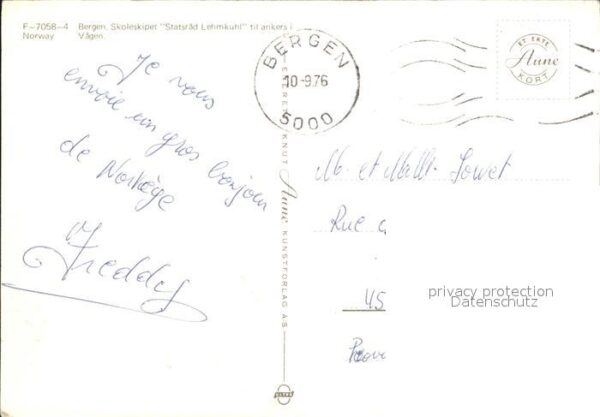 F-7058-4 Bergen. Skoleskipet "Statsråd Lehmkuhl" til ankers i
Norway Vågen.
Je vous
envoie un gros bonjour
de Norvège
Freddy
BERGEN
10-9.76
5000
ENERETT: KNUT Aune KUNSTFORLAG A.S.
ET EKTE
Aune
KORT
M. et
Rue
45
privacy protection
Datenschutz